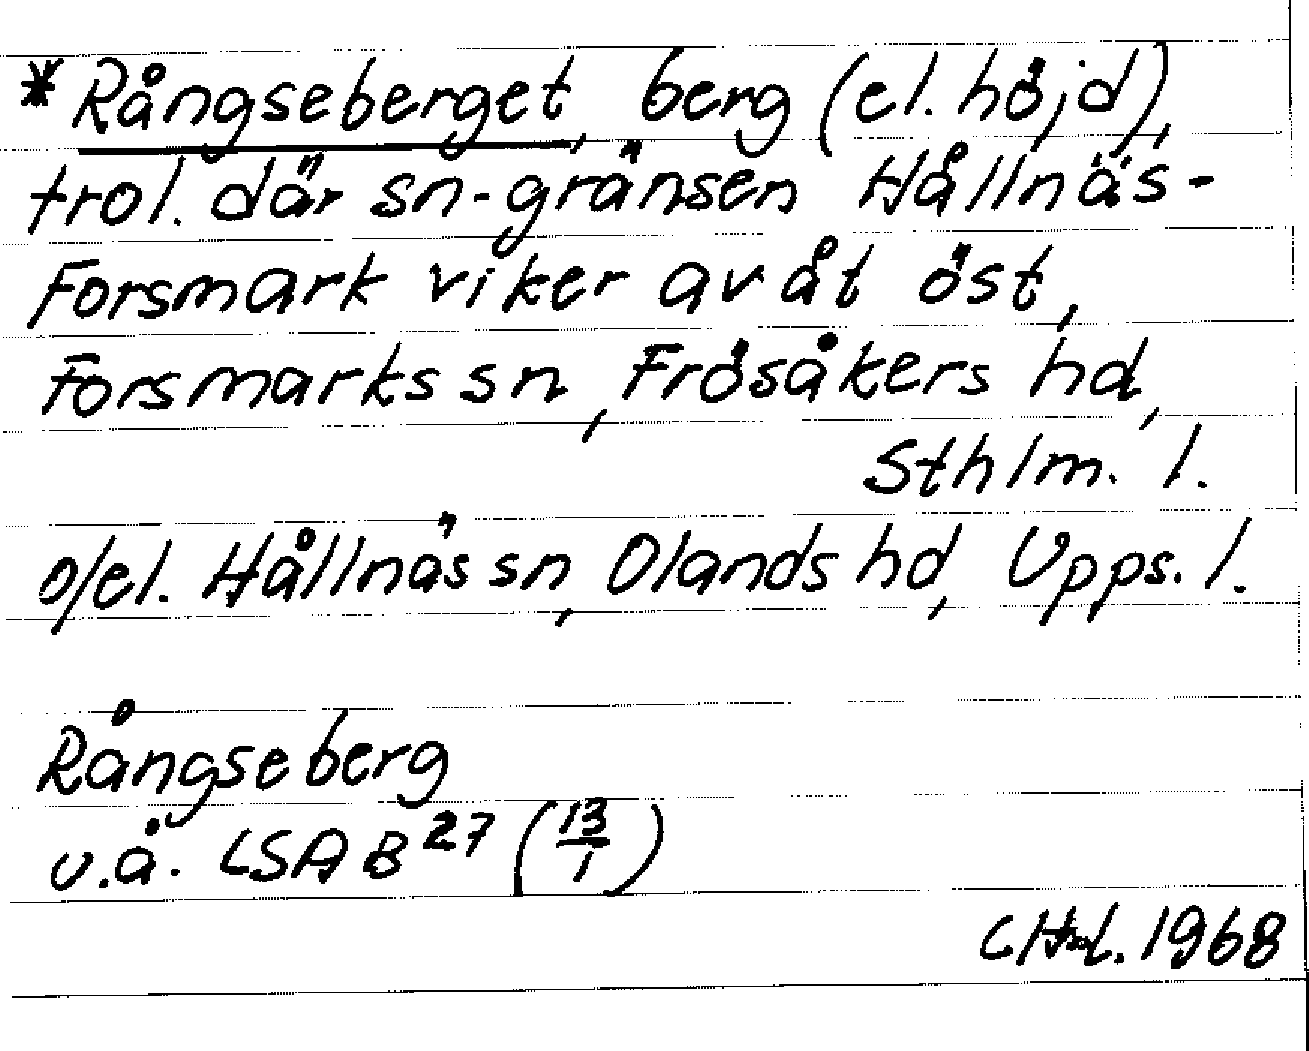 *Rångseberget, berg (el. höjd),
trol. där sn-gränsen Hållnäs-
Forsmark viker av åt öst,
Forsmarks sn, Frösåkers hd,
Sthlm. l.
o/el. Hållnäs sn, Olands hd, Upps. l.
Rångseberg
u.å. LSA B 27 (13/1)
1968